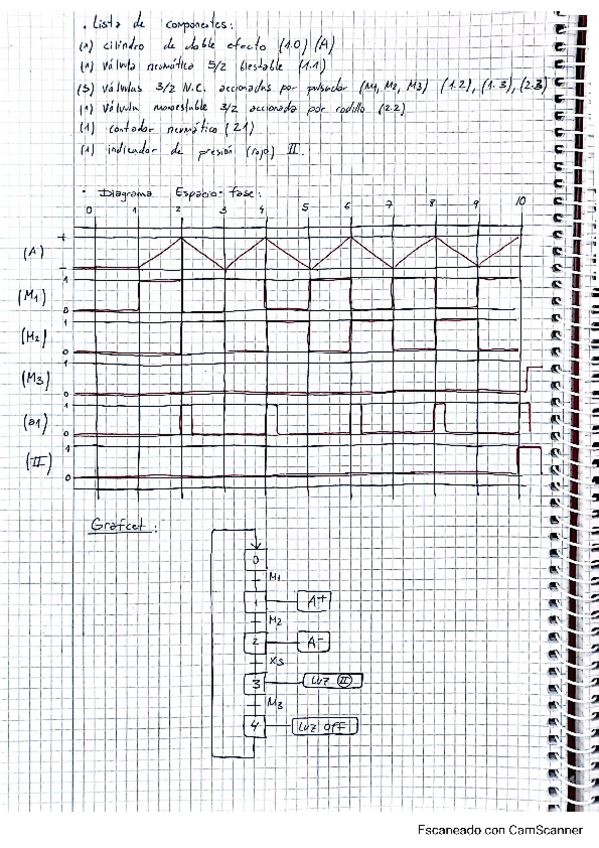 . Lista de componentes:
(1) cilindro de doble efecto (1.0) (A)
(1) Válvula neumática 5/2 biestable (1.1)
(3) Válvulas 3/2 N.C. accionadas por pulsador (M1, M2, M3) (1.2), (1.3), (2.3)
(1) Válvula monoestable 3/2 accionada por rodillo (2.2)
(1) contador neumático (2.1)
(1) indicador de presión (rojo) II.
. Diagrama Espacio-fase:
0 1 2 3 4 5 6 7 8 9 10
+
(A)
-
1
(M1)
0
1
(M2)
0
1
(M3)
0
1
(a1)
0
1
(II)
0
Grafcet:
0
M1
1 A+
M2
2 A-
X5
3 Luz II
M3
4 Luz OFF
Escaneado con CamScanner